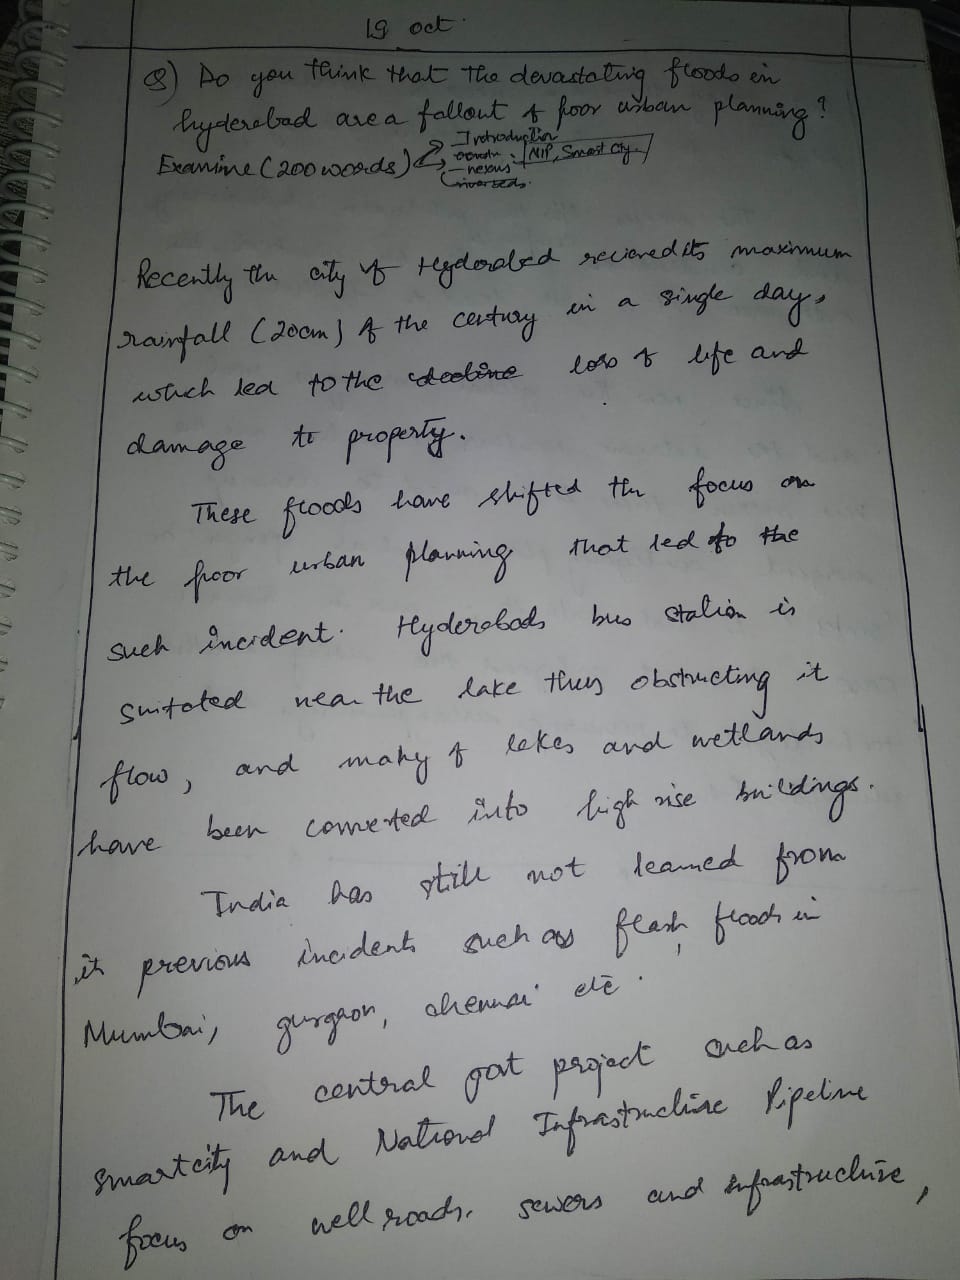 19 oct.
Q) Do you think that the devastating floods in
hyderebad are a fallout of poor urban planning?
Examine (200 words)
Introduction
NIP, Smart City
- nexus
Recently the city of Hyderabad recieved its maximum
rainfall (20cm) of the century in a single day,
which led to the decline loss of life and
damage to property.
These floods have shifted the focus on
the poor urban planning that led to the
such incident. Hyderabads bus station is
suitated near the lake thus obstructing it
flow, and many of lakes and wetlands
have been converted into high rise buildings.
India has still not learned from
it previous incidents such as flash floods in
Mumbai, gurgaon, chennai etc.
The central govt project such as
smartcity and National Infrastructure Pipeline
focus on well roads, sewers and infrastructure,